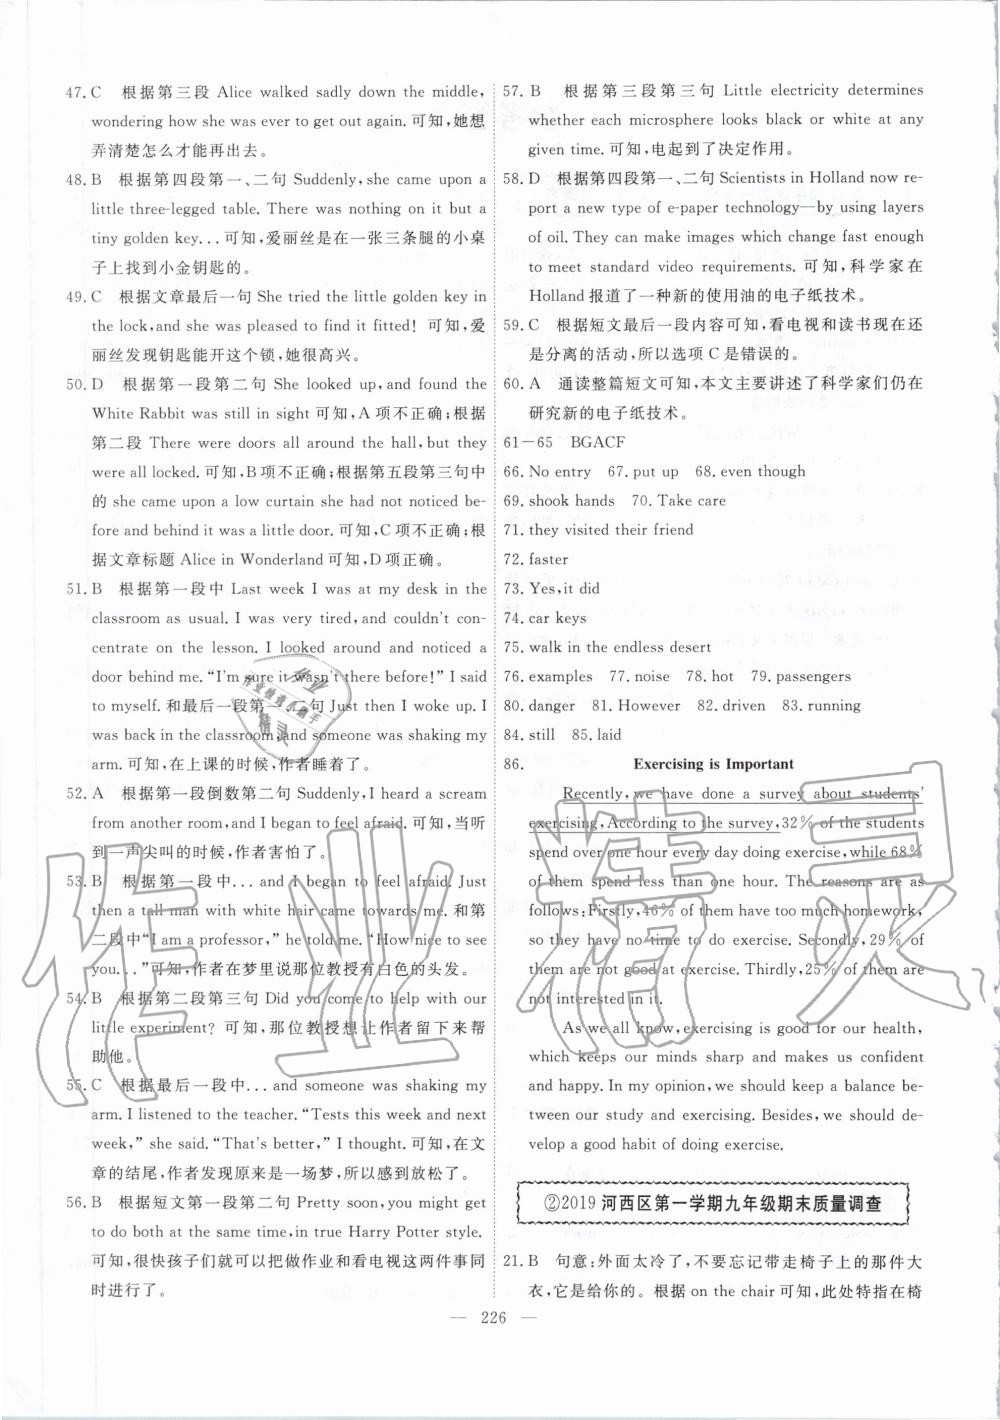 47. C 根据第三段 Alice walked sadly down the middle,
wondering how she was ever to get out again. 可知,她想
弄清楚怎么才能再出去。
48. B 根据第四段第一、二句 Suddenly, she came upon a
little three-legged table. There was nothing on it but a
tiny golden key... 可知,爱丽丝是在一张三条腿的小桌
子上找到小金钥匙的。
49. C 根据文章最后一句 She tried the little golden key in
the lock, and she was pleased to find it fitted! 可知,爱
丽丝发现钥匙能开这个锁,她很高兴。
50. D 根据第一段第二句 She looked up, and found the
White Rabbit was still in sight 可知,A 项不正确;根据
第二段 There were doors all around the hall, but they
were all locked. 可知,B 项不正确;根据第五段第三句中
的 she came upon a low curtain she had not noticed be-
fore and behind it was a little door. 可知,C 项不正确;根
据文章标题 Alice in Wonderland 可知,D 项正确。
51. B 根据第一段中 Last week I was at my desk in the
classroom as usual. I was very tired, and couldn't con-
centrate on the lesson. I looked around and noticed a
door behind me. “I'm sure it wasn't there before!” I said
to myself. 和最后一段第一、二句 Just then I woke up. I
was back in the classroom, and someone was shaking my
arm. 可知,在上课的时候,作者睡着了。
52. A 根据第一段倒数第二句 Suddenly, I heard a scream
from another room, and I began to feel afraid. 可知,当听
到一声尖叫的时候,作者害怕了。
53. B 根据第一段中... and I began to feel afraid. Just
then a tall man with white hair came towards me. 和第
二段中“I am a professor,” he told me. “How nice to see
you...”可知,作者在梦里说那位教授有白色的头发。
54. B 根据第二段第三句 Did you come to help with our
little experiment? 可知,那位教授想让作者留下来帮
助他。
55. C 根据最后一段中... and someone was shaking my
arm. I listened to the teacher. “Tests this week and next
week,” she said. “That's better,” I thought. 可知,在文
章的结尾,作者发现原来是一场梦,所以感到放松了。
56. B 根据短文第一段第二句 Pretty soon, you might get
to do both at the same time, in true Harry Potter style.
可知,很快孩子们可以把做作业和看电视这两件事同
时进行了。
57. B 根据第三段第三句 Little electricity determines
whether each microsphere looks black or white at any
given time. 可知,电起到了决定作用。
58. D 根据第四段第一、二句 Scientists in Holland now re-
port a new type of e-paper technology—by using layers
of oil. They can make images which change fast enough
to meet standard video requirements. 可知,科学家在
Holland 报道了一种新的使用油的电子纸技术。
59. C 根据短文最后一段内容可知,看电视和读书现在还
是分离的活动,所以选项 C 是错误的。
60. A 通读整篇短文可知,本文主要讲述了科学家们仍在
研究新的电子纸技术。
61—65 BGACF
66. No entry 67. put up 68. even though
69. shook hands 70. Take care
71. they visited their friend
72. faster
73. Yes, it did
74. car keys
75. walk in the endless desert
76. examples 77. noise 78. hot 79. passengers
80. danger 81. However 82. driven 83. running
84. still 85. laid
86. Exercising is Important
Recently, we have done a survey about students'
exercising, According to the survey, 32% of the students
spend over one hour every day doing exercise, while 68%
of them spend less than one hour. The reasons are as
follows: Firstly, 46% of them have too much homework,
so they have no time to do exercise. Secondly, 29% of
them are not good at exercise. Thirdly, 25% of them are
not interested in it.
As we all know, exercising is good for our health,
which keeps our minds sharp and makes us confident
and happy. In my opinion, we should keep a balance be-
tween our study and exercising. Besides, we should de-
velop a good habit of doing exercise.
②2019 河西区第一学期九年级期末质量调查
21. B 句意:外面太冷了,不要忘记带走椅子上的那件大
衣,它是给你的。根据 on the chair 可知,此处特指在椅
— 226 —
作业精灵